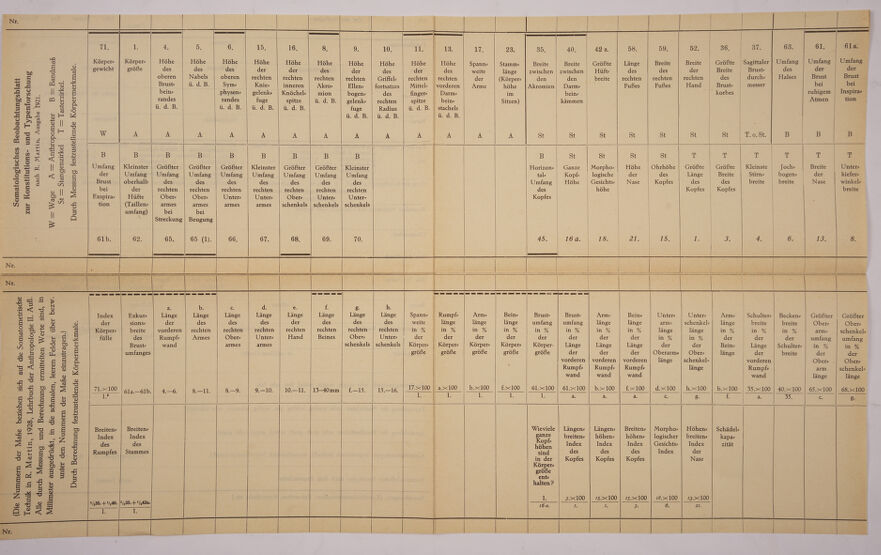 Nr.
Somatologisches Beobachtungsblatt
zur Konstitutions- und Typenforschung
nach R. Martin, Ausgabe 1925.
W = Wage A = Anthropometer B = Bandmaß
St = Stangenzirkel T = Tasterzirkel.
Durch Messung festzustellende Körpermerkmale.
71. 1. 4. 5. 6. 15. 16. 8. 9. 10. 11. 13. 17. 23. 35. 40. 42 a. 58. 59. 52. 36. 37. 63. 61. 61a.
Körper-
gewicht
W
Körper-
größe
A
Höhe
des
oberen
Brust-
bein-
randes
ü. d. B.
A
Höhe
des
Nabels
ü. d. B.
A
Höhe
des
oberen
Sym-
physen-
randes
ü. d. B.
A
Höhe
der
rechten
Knie-
gelenk-
fuge
A
Höhe
der
rechten
inneren
Knöchel-
spitze
ü. d. B.
A
Höhe
des
rechten
Akro-
mion
ü. d. B.
A
Höhe
der
rechten
Ellen-
bogen-
gelenk-
fuge
ü. d. B.
A
Höhe
des
Griffel-
fortsatzes
des
rechten
Radius
ü. d. B.
A
Höhe
der
rechten
Mittel-
finger-
spitze
ü. d. B.
A
Höhe
des
rechten
vorderen
Darm-
bein-
stachels
ü. d. B.
A
Spann-
weite
der
Arme
A
Stamm-
länge
(Körper-
höhe
im
Sitzen)
A
Breite
zwischen
den
Akromien
St
Breite
zwischen
den
Darm-
bein-
kämmen
St
Größte
Hüft-
breite
St
Länge
des
rechten
Fußes
St
Breite
des
rechten
Fußes
St
Breite
der
rechten
Hand
St
Größte
Breite
des
Brust-
korbes
St
Sagittaler
Brust-
durch-
messer
T. o. St.
Umfang
des
Halses
B
Umfang
der
Brust
bei
ruhigem
Atmen
B
Umfang
der
Brust
bei
Inspira-
tion
B
B
Umfang
der
Brust
bei
Exspira-
tion
61b.
B
Kleinster
Umfang
oberhalb
der
Hüfte
(Taillen-
umfang)
62.
B
Größter
Umfang
des
rechten
Ober-
armes
bei
Streckung
65.
B
Größter
Umfang
des
rechten
Ober-
armes
bei
Beugung
65 (1).
B
Größter
Umfang
des
rechten
Unter-
armes
66.
B
Kleinster
Umfang
des
rechten
Unter-
armes
67.
B
Größter
Umfang
des
rechten
Ober-
schenkels
68.
B
Größter
Umfang
des
rechten
Unter-
schenkels
69.
B
Kleinster
Umfang
des
rechten
Unter-
schenkels
70.
B
Horizon-
tal-
Umfang
des
Kopfes
45.
St
Ganze
Kopf-
Höhe
16 a.
St
Morpho-
logische
Gesichts-
höhe
18.
St
Höhe
der
Nase
21.
St
Ohrhöhe
des
Kopfes
15.
T
Größte
Länge
des
Kopfes
1.
T
Größte
Breite
des
Kopfes
3.
T
Kleinste
Stirn-
breite
4.
T
Joch-
bogen-
breite
6.
T
Breite
der
Nase
13.
T
Unter-
kiefer-
winkel-
breite
8.
Nr.
Nr.
(Die Nummern der Maße beziehen sich auf die Somatometrische
Technik in R. Martin, 1928, Lehrbuch der Anthropologie II. Aufl.
Alle durch Messung und Berechnung ermittelten Werte sind, in
Millimeter ausgedrückt, in die schmalen, leeren Felder über bezw.
unter den Nummern der Maße einzutragen.)
Durch Berechnung festzustellende Körpermerkmale.
Index
der
Körper-
fülle
Exkur-
sions-
breite
des
Brust-
umfanges
61a.—61b.
a.
Länge
der
vorderen
Rumpf-
wand
4.—6.
b.
Länge
des
rechten
Armes
8.—11.
c.
Länge
des
rechten
Ober-
armes
8.—9.
d.
Länge
des
rechten
Unter-
armes
9.—10.
e.
Länge
der
rechten
Hand
10.—11.
f.
Länge
des
rechten
Beines
13—40mm
g.
Länge
des
rechten
Ober-
schenkels
f.—15.
h.
Länge
des
rechten
Unter-
schenkels
15.—16.
Spann-
weite
in %
der
Körper-
größe
17.×100
1.
Rumpf-
länge
in %
der
Körper-
größe
a.×100
1.
Arm-
länge
in %
der
Körper-
größe
b.×100
1.
Bein-
länge
in %
der
Körper-
größe
f.×100
1.
Brust-
umfang
in %
der
Körper-
größe
61.×100
1.
Brust-
umfang
in %
der
Länge
der
vorderen
Rumpf-
wand
61.×100
a.
Arm-
länge
in %
der
Länge
der
vorderen
Rumpf-
wand
b.×100
a.
Bein-
länge
in %
der
Länge
der
vorderen
Rumpf-
wand
f.×100
a.
Unter-
arm-
länge
in %
der
Oberarm-
länge
d.×100
c.
Unter-
schenkel-
länge
in %
der
Ober-
schenkel-
länge
h.×100
g.
Arm-
länge
in %
der
Bein-
länge
b.×100
f.
Schulter-
breite
in %
der
Länge
der
vorderen
Rumpf-
wand
35.×100
a.
Becken-
breite
in %
der
Schulter-
breite
40.×100
35.
Größter
Ober-
arm-
umfang
in %
der
Ober-
arm
länge
65.×100
c.
Größter
Ober-
schenkel-
umfang
in %
der
Ober-
schenkel-
länge
68.×100
g.
Breiten-
Index
des
Rumpfes
Breiten-
Index
des
Stammes
Wieviele
ganze
Kopf-
höhen
sind
in der
Körper-
größe
ent-
halten?
1.
16a.
Längen-
breiten-
Index
des
Kopfes
3.×100
1.
Längen-
höhen-
Index
des
Kopfes
15.×100
1.
Breiten-
höhen-
Index
des
Kopfes
15.×100
3.
Morpho-
logischer
Gesichts-
Index
18.×100
6.
Höhen-
breiten-
Index
der
Nase
13.×100
21.
Schädel-
kapa-
zität
Nr.